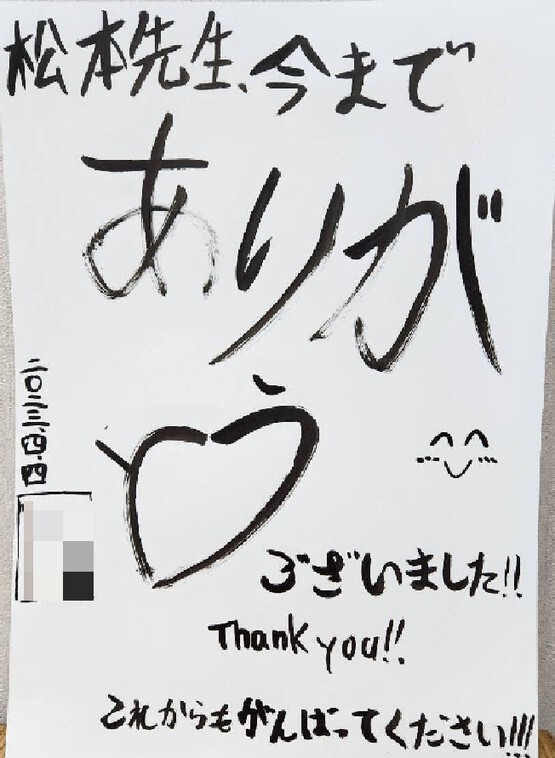 松本先生、今まで
ありが
とう
ございました!!
Thank you!!
これからもがんばってください!!!